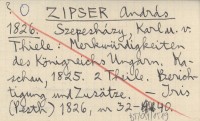 O ZIPSER András
1826. Szepesházy, Karl u. v.
Thiele: Merkwürdigkeiten
des Königreichs Ungarn. Ka-
schau, 1825. 2 Theile. Berich-
tigung und Zusätze. – Iris
(Pesth) 1826, nr 32-40.